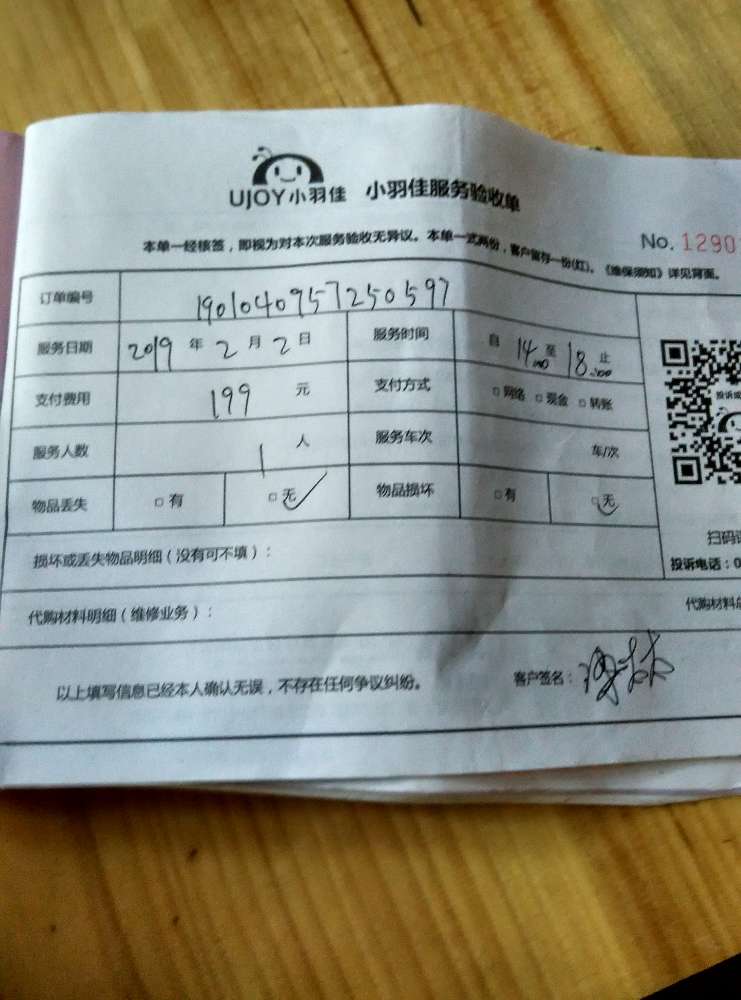 UJOY小羽佳 小羽佳服务验收单
No. 1290
本单一经核签，即视为对本次服务验收无异议。本单一式两份，客户留存一份(红)。《维保须知》详见背面。
订单编号 1901040957250597
服务日期 2019 年 2 月 2 日 服务时间 自 14:00 至 18:00 止
支付费用 199 元 支付方式 □网络 □现金 □转账
服务人数 1 人 服务车次 车/次
物品丢失 □有 □无✓ 物品损坏 □有 □无✓
损坏或丢失物品明细（没有可不填）：
扫码
投诉电话：0
代购材料明细（维修业务）： 代购材料
以上填写信息已经本人确认无误，不存在任何争议纠纷。 客户签名：